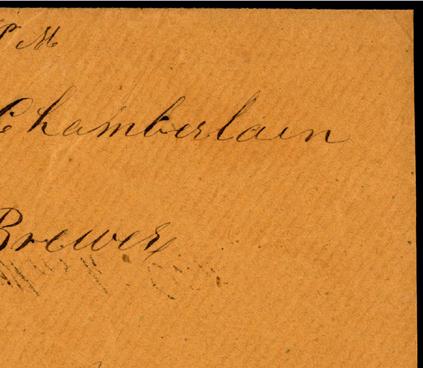 P M
Chamberlain
Brewer